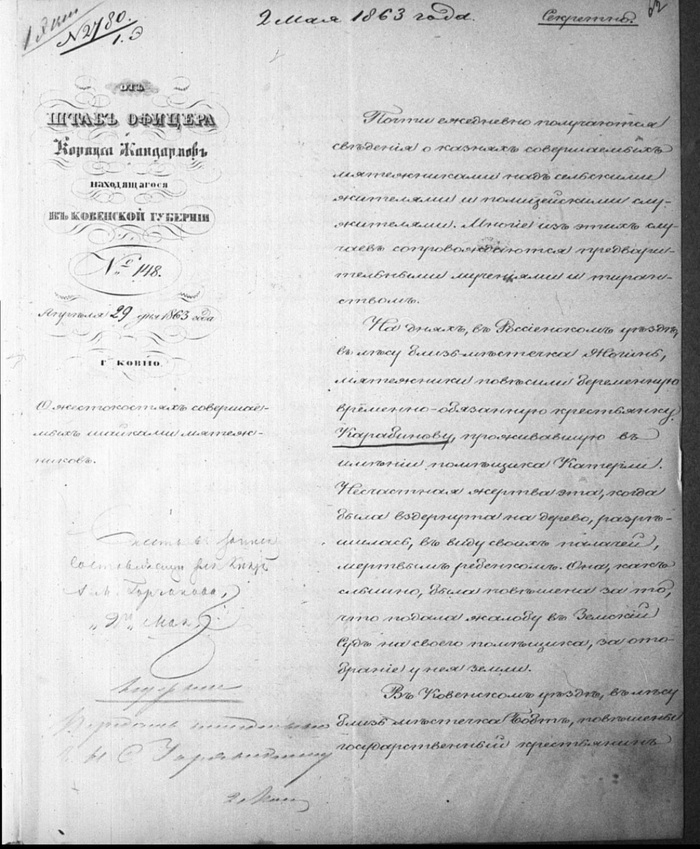 1 Эксп
№ 2780.
1. Э
2 Мая 1863 года.
Секретно.
62
ОТЪ
ШТАБЪ ОФИЦЕРА
Корпуса Жандармовъ
находящагося
ВЪ КОВЕНСКОЙ ГУБЕРНІИ
№ 148.
Апрѣля 29 дня 1863 года
Г. КОВНО.
О жестокостяхъ совершае-
мыхъ шайками мятеж-
никовъ.
Почти ежедневно получаются
свѣденія о казняхъ совершаемыхъ
мятежниками надъ сельскими
жителями и полицейскими слу-
жителями. Многіе изъ этихъ слу-
чаевъ сопровождаются предвари-
тельными мученіями и тиран-
ствомъ.
На дняхъ, въ Россіенскомъ уѣздѣ,
въ лѣсу близъ мѣстечка
мятежники повѣсили беременную
временно-обязанную крестьянку
Карабинову, проживавшую въ
имѣніи помѣщика Катерли.
Несчастная жертва эта, когда
была вздернута на дерево, разрѣ-
шилась, въ виду своихъ палачей,
мертвымъ ребенкомъ. Она, какъ
слышно, была повѣшена за то,
что подала жалобу въ Земскій
Судъ на своего помѣщика, за ото-
браніе у нея земли.
Въ Ковенскомъ уѣздѣ, въ лѣсу
близъ мѣстечка повѣшены
государственный крестьянинъ
составленную для Князя
Горчакова,
Мая
2 Мая